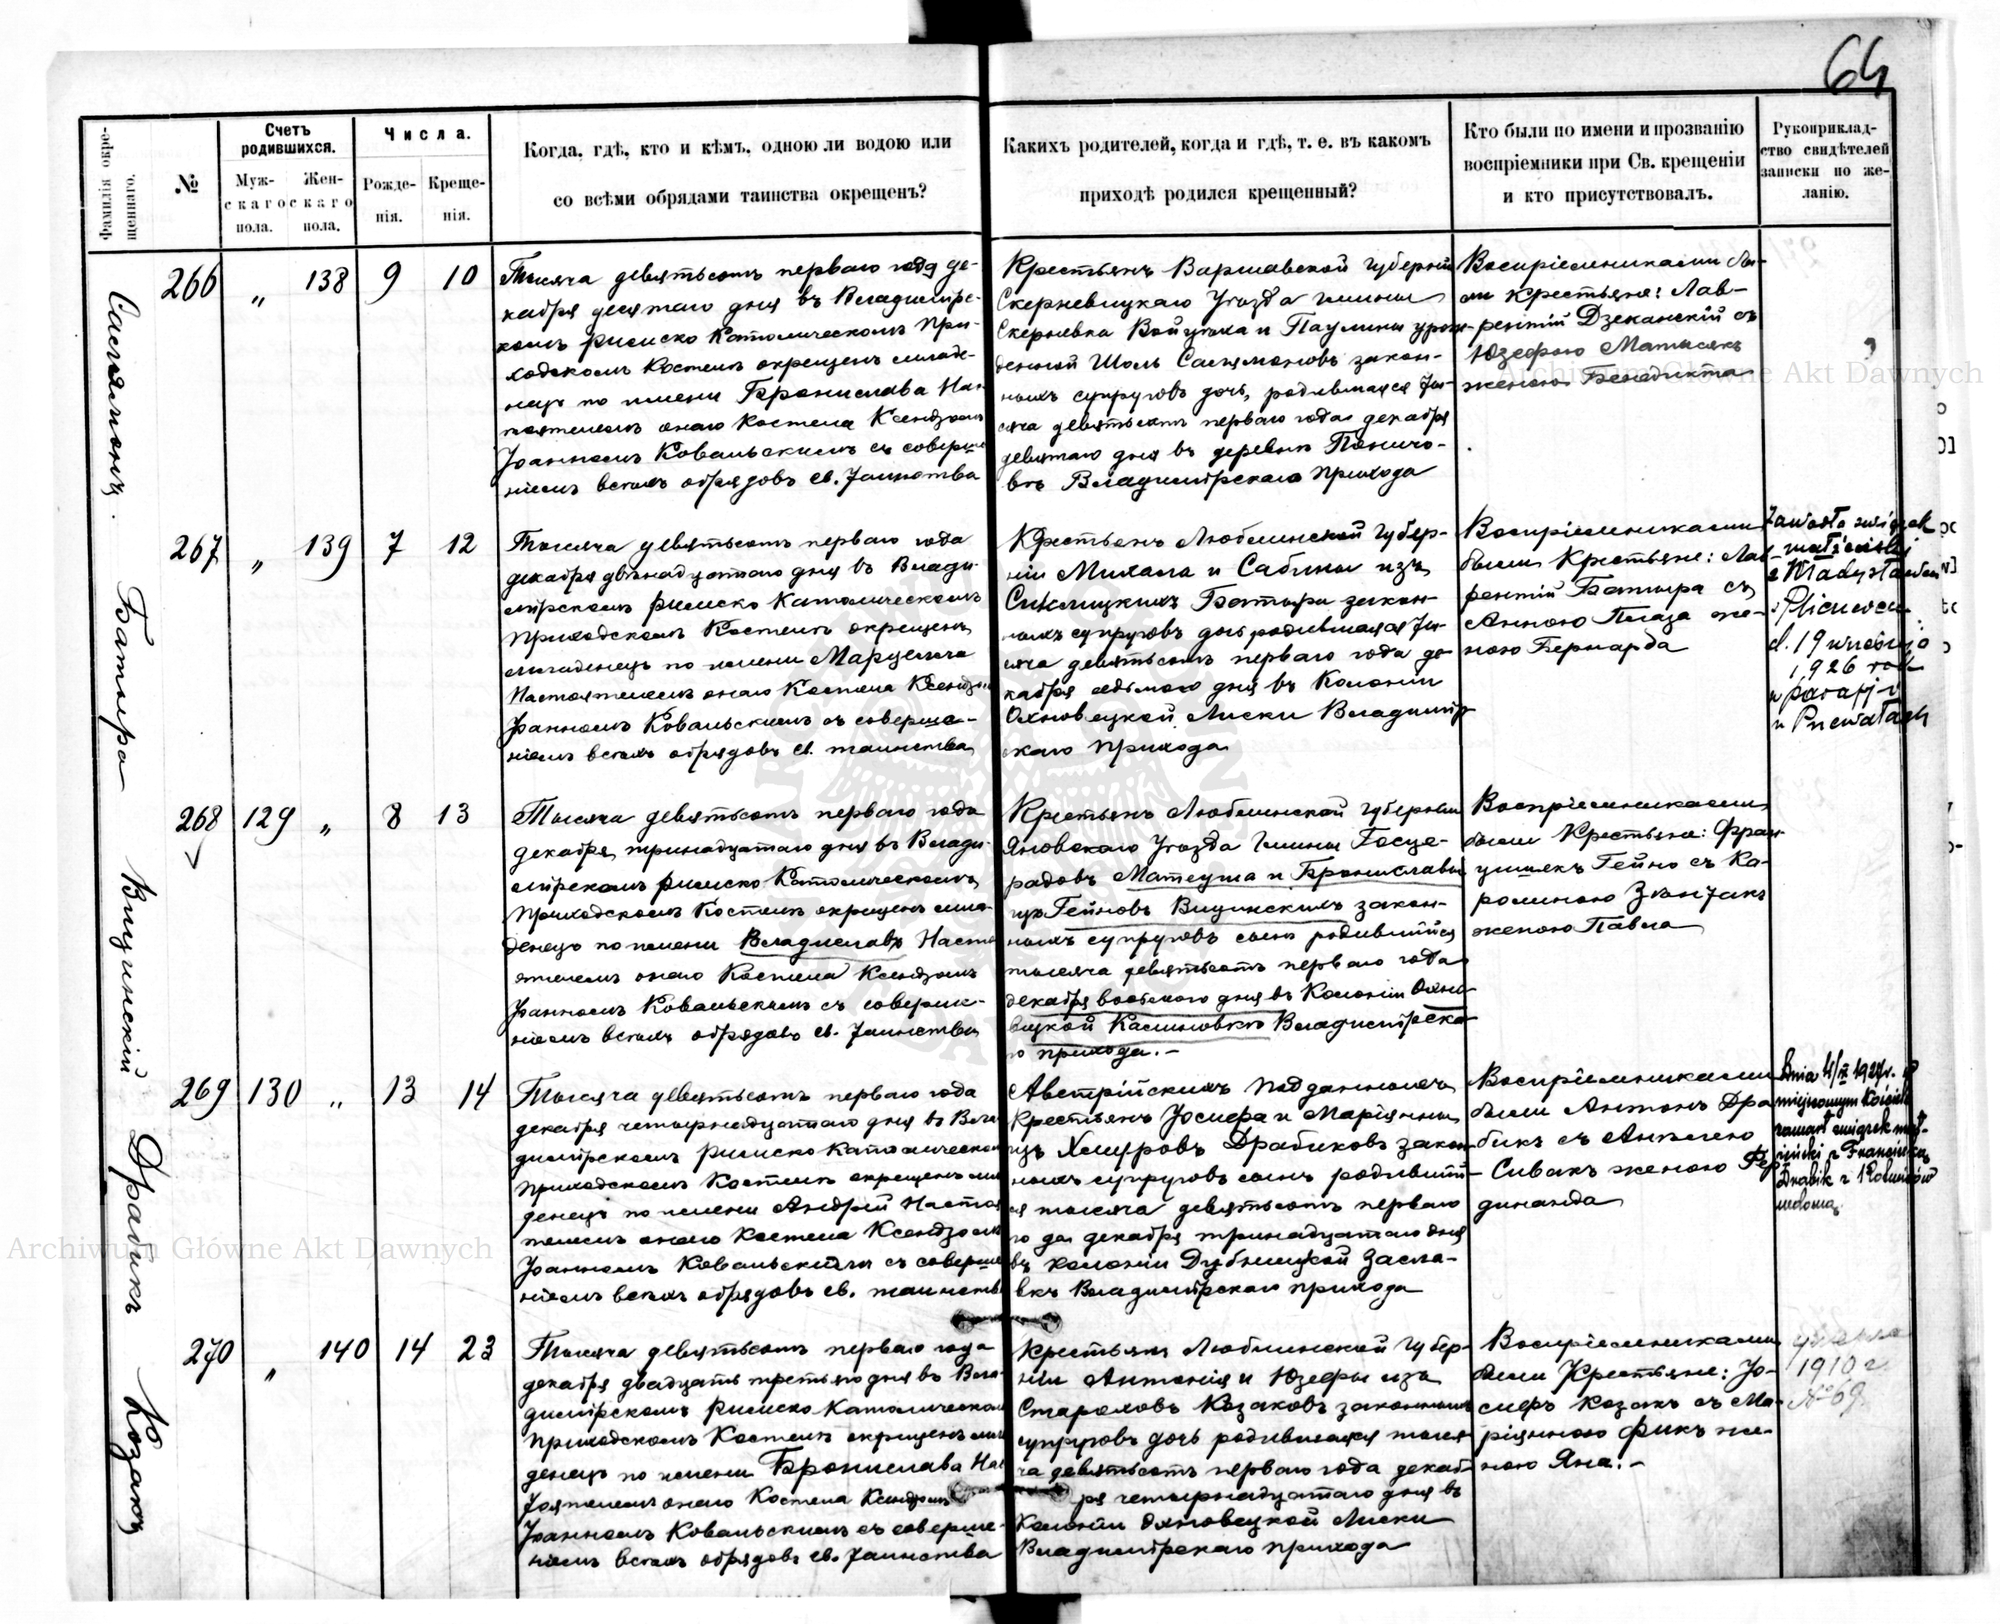 64
Фамилія окре-
щеннаго.
№
Счетъ
родившихся.
Муж-
скаго
пола.
Жен-
скаго
пола.
Числа.
Рожде-
нія.
Креще-
нія.
Когда, гдѣ, кто и кѣмъ, одною ли водою или
со всѣми обрядами таинства окрещенъ?
Какихъ родителей, когда и гдѣ, т. е. въ какомъ
приходѣ родился крещенный?
Кто были по имени и прозванію
воспріемники при Св. крещеніи
и кто присутствовалъ.
Рукоприклад-
ство свидѣтелей
записки по же-
ланію.
266 „ 138 9 10
Тысяча девятьсотъ перваго года де-
кабря десятаго дня въ Владимірс-
комъ римско Католическомъ При-
ходскомъ Костелѣ окрещенъ младе-
нецъ по имени Бронислава Нас-
тоятелемъ онаго Костела Ксендзомъ
Іоанномъ Ковальскимъ съ соверше-
ніемъ всѣхъ обрядовъ св. Таинства
Крестьянъ Варшавской Губерніи
Скерневицкаго Уѣзда Гмины
Скерневка Войцѣха и Паулины урож-
денной Шоль закон-
ныхъ супруговъ дочь, родившаяся Ты-
сяча девятьсотъ перваго года декабря
девятаго дня въ деревнѣ
Владимірскаго прихода
Воспріемниками бы-
ли крестьяне: Лав-
рентій Дзеканскій съ
Юзефою Матысякъ
женою Бенедикта
267 „ 139 7 12
Батыра
Тысяча девятьсотъ перваго года
декабря двѣнадцатаго дня въ Влади-
мірскомъ римско Католическомъ
Приходскомъ Костелѣ окрещенъ
младенецъ по имени Марцелла
Настоятелемъ онаго Костела Ксендзомъ
Іоанномъ Ковальскимъ съ соверше-
ніемъ всѣхъ обрядовъ св. таинства
Крестьянъ Люблинской Губер-
ніи Михала и Сабины изъ
Батыра закон-
ныхъ супруговъ дочь родившаяся Ты-
сяча девятьсотъ перваго года де-
кабря седьмаго дня въ Колоніи
Охновецкой Лиски Владимір-
скаго прихода
Воспріемниками
были Крестьяне: Лав-
рентій Батыра съ
Анною же-
ною Бернарда
Zawarła związek
małżeński
z Władysławem
d. 19 września
1926 roku
w parafji
268 129 „ 8 13
Вицинскій
Тысяча девятьсотъ перваго года
декабря тринадцатаго дня въ Влади-
мірскомъ римско Католическомъ
Приходскомъ Костелѣ окрещенъ мла-
денецъ по имени Владиславъ Насто-
ятелемъ онаго Костела Ксендзомъ
Іоанномъ Ковальскимъ съ соверше-
ніемъ всѣхъ обрядовъ св. Таинства
Крестьянъ Люблинской Губерніи
Яновскаго Уѣзда Гмины Госце-
радовъ Матеуша и Брониславы
изъ Гейновъ Вицинскихъ закон-
ныхъ супруговъ сынъ родившійся
тысяча девятьсотъ перваго года
декабря восьмого дня въ Колоніи Охно-
вецкой Калиновкѣ Владимірска-
го прихода. –
Воспріемниками
были Крестьяне: Фран-
цишекъ Гейно съ Ка-
ролиною
женою Павла
269 130 „ 13 14
Драбикъ
Тысяча девятьсотъ перваго года
декабря четырнадцатаго дня въ Вла-
димірскомъ римско Католическомъ
Приходскомъ Костелѣ окрещенъ мла-
денецъ по имени Андрей Настоя-
телемъ онаго Костела Ксендзомъ
Іоанномъ Ковальскимъ съ соверше-
ніемъ всѣхъ обрядовъ св. таинства
Австрійскихъ подданныхъ
Крестьянъ Іосифа и Маріянны
изъ Хмуровъ Драбиковъ закон-
ныхъ супруговъ сынъ родившій-
ся тысяча девятьсотъ перваго
года декабря тринадцатаго дня
въ колоніи Дубницкой Засла-
вкѣ Владимірскаго прихода
Воспріемниками
были Антонъ Дра-
бикъ съ Анелею
Сивакъ женою Фер-
динанда
miejscowym Kościele
zawarł związek mał-
żeński z Franciszką
Drabik z
270 „ 140 14 23
Козакъ
Тысяча девятьсотъ перваго года
декабря двадцать третьяго дня въ Вла-
димірскомъ римско Католическомъ
Приходскомъ Костелѣ окрещенъ мла-
денецъ по имени Бронислава Нас-
тоятелемъ онаго Костела Ксендзомъ
Іоанномъ Ковальскимъ съ соверше-
ніемъ всѣхъ обрядовъ св. Таинства
Крестьянъ Люблинской Губер-
ніи Антонія и Юзефы изъ
Козаковъ законныхъ
супруговъ дочь родившаяся тыся-
ча девятьсотъ перваго года декаб-
ря четырнадцатаго дня въ
Колоніи Охновецкой Лиски
Владимірскаго прихода
Воспріемниками
были Крестьяне: Іо-
сифъ Козакъ съ Ма-
ріянною Фикъ же-
ною Яна. –
1910 г
№ 69
Archiwum Główne Akt Dawnych
Archiwum Główne Akt Dawnych